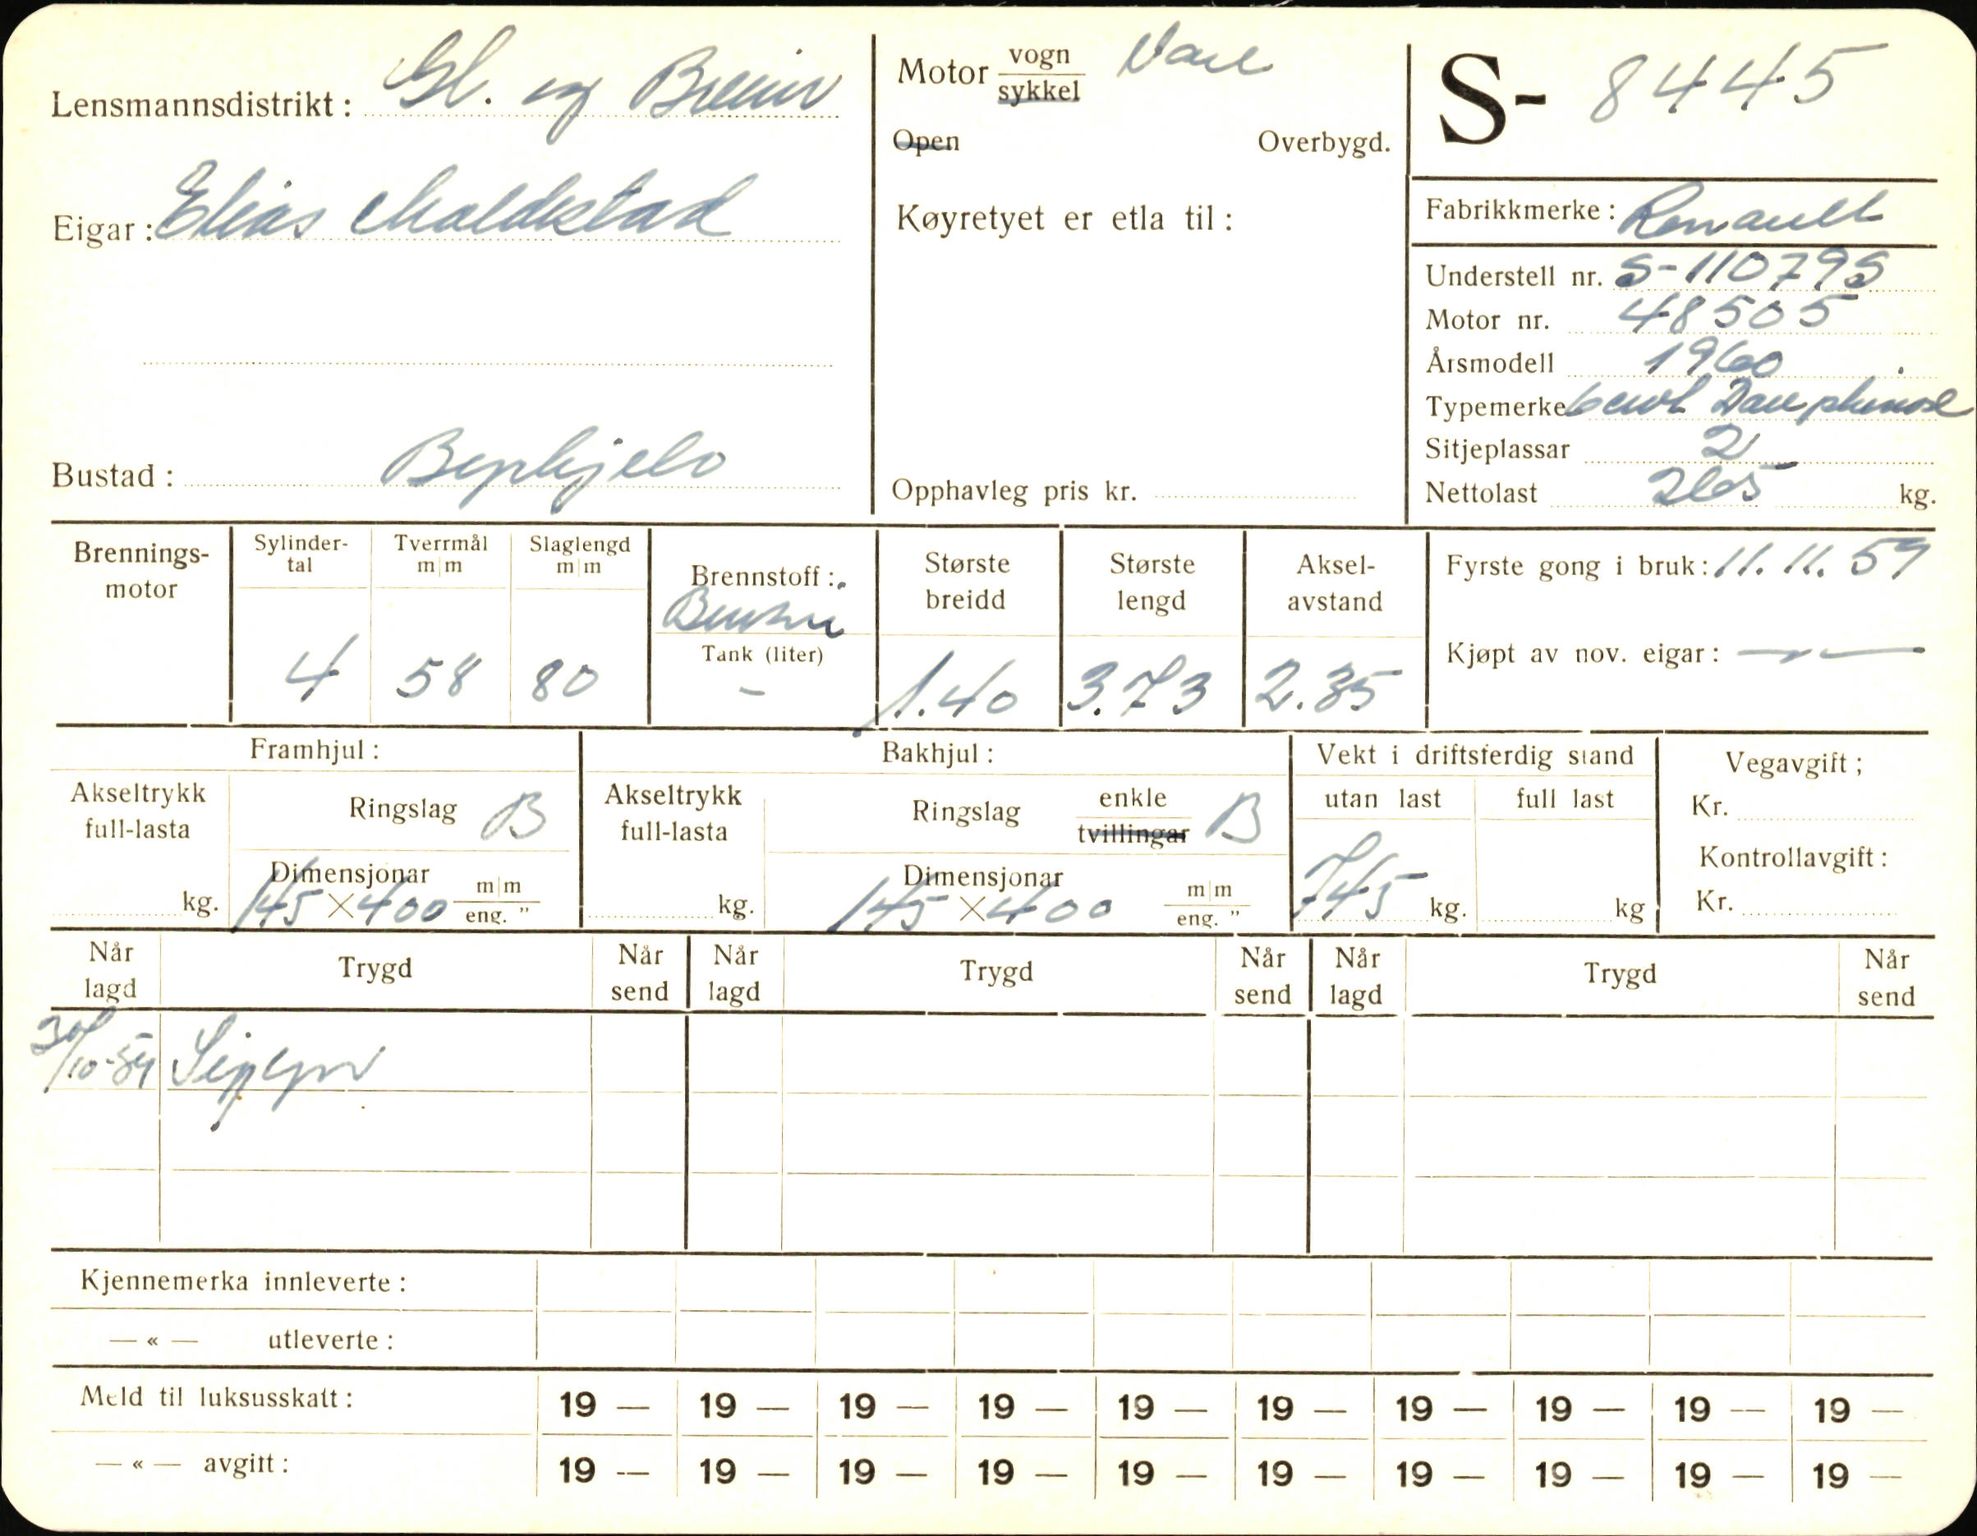 Lensmannsdistrikt: Gl. og Breim
Eigar: Elias Maldestad
Bustad:
Motor vogn Vare
sykkel
Open Overbygd.
Køyretyet er etla til:
Opphavleg pris kr.
S- 8445
Fabrikkmerke: Renault
Understell nr. S-110795
Motor nr. 48505
Årsmodell 1960
Typemerke Dauphinoise
Sitjeplassar 2
Nettolast 265 kg.
Brennings-
motor
Sylinder-
tal
4
Tverrmål
m|m
58
Slaglengd
m|m
80
Brennstoff: Bensin
Tank (liter)
-
Største
breidd
1.40
Største
lengd
3.73
Aksel-
avstand
2.35
Fyrste gong i bruk: 11.11.59
Kjøpt av nov. eigar: — " —
Framhjul:
Akseltrykk
full-lasta
kg.
Ringslag B
Dimensjonar
145 × 400 m|m
eng. "
Bakhjul:
Akseltrykk
full-lasta
kg.
Ringslag enkle B
tvillingar
Dimensjonar
145 × 400 m|m
eng. "
Vekt i driftsferdig stand
utan last full last
745 kg. kg
Vegavgift;
Kr.
Kontrollavgift:
Kr.
Når
lagd Trygd Når
send Når
lagd Trygd Når
send Når
lagd Trygd Når
send
30/10-59 Sigyn
Kjennemerka innleverte:
— « — utleverte:
Meld til luksusskatt: 19 — 19 — 19 — 19 — 19 — 19 — 19 — 19 — 19 — 19 —
— « — avgift: 19 — 19 — 19 — 19 — 19 — 19 — 19 — 19 — 19 — 19 —